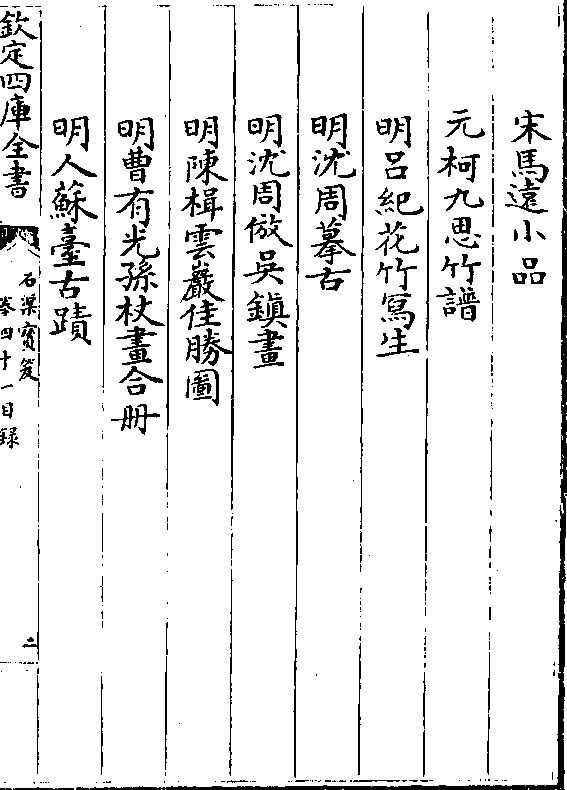 宋馬遠小品
元柯九思竹譜
明呂紀花竹寫生
明沈周摹古
明沈周倣吳鎮畫
明陳楫雲巖佳勝圖
明曹有光孫杕畫合册
明人蘇臺古蹟
欽定四庫全書
石渠寳笈
卷四十一目録
二